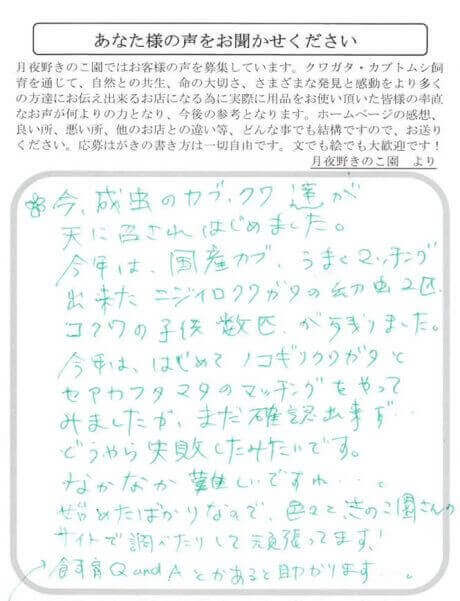 あなた様の声をお聞かせください
月夜野きのこ園ではお客様の声を募集しています。クワガタ・カブトムシ飼
育を通じて、自然との共生、命の大切さ、さまざまな発見と感動をより多く
の方達にお伝え出来るお店になる為に実際に用品をお使い頂いた皆様の率直
なお声が何よりの力となり、今後の参考となります。ホームページの感想、
良い所、悪い所、他のお店との違い等、どんな事でも結構ですので、お送り
ください。応募はがきの書き方は一切自由です。文でも絵でも大歓迎です！
月夜野きのこ園 より
今、成虫のカブ、クワ達が
天に召されはじめました。
今年は、国産カブ、うまくマッチング
出来たニジイロクワガタの幼虫2匹、
コクワの子供数匹、が残りました。
今年は、はじめてノコギリクワガタと
セアカフタマタのマッチングをやって
みましたが、まだ確認出来ず…
どうやら失敗したみたいです。
なかなか難しいですね…。
始めたばかりなので、色々ときのこ園さんの
サイトで調べたりして頑張ってます！
飼育QandAとかあると助かります…。